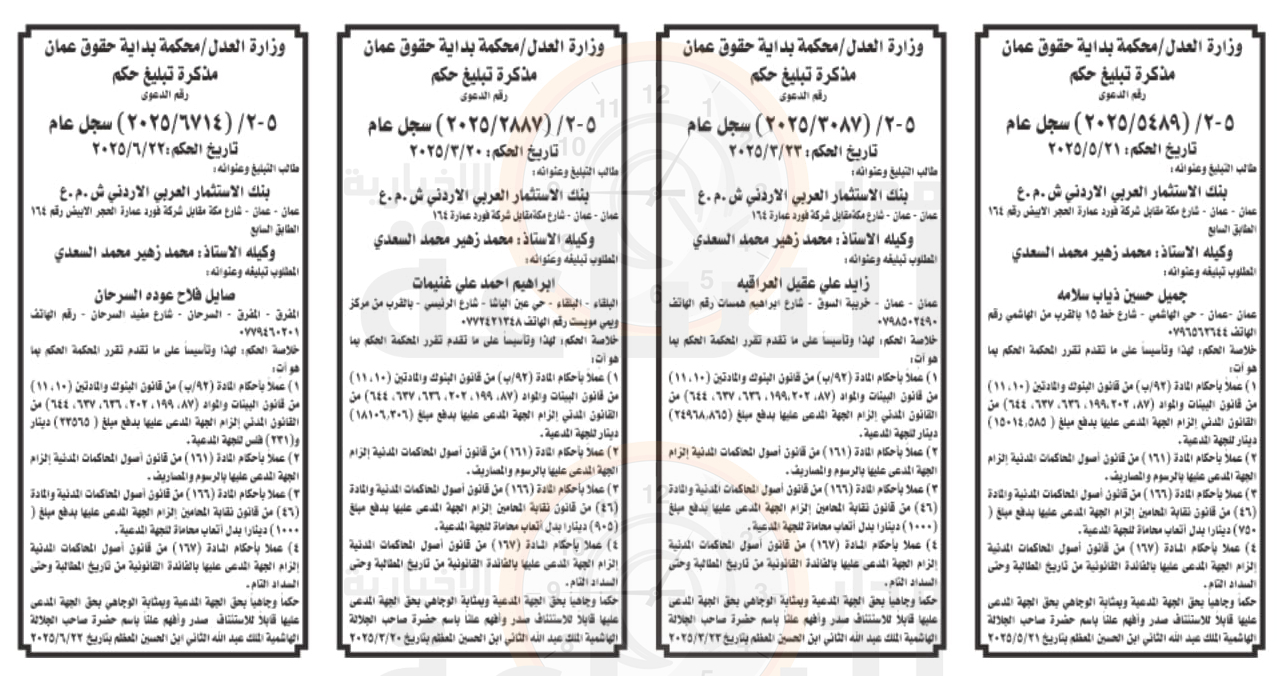 وزارة العدل/محكمة بداية حقوق عمان
مذكرة تبليغ حكم
رقم الدعوى
٥-٢/ (٢٠٢٥/٥٤٨٩) سجل عام
تاريخ الحكم: ٢٠٢٥/٥/٢١
طالب التبليغ وعنوانه:
بنك الاستثمار العربي الاردني ش.م.ع
عمان - عمان - شارع مكة مقابل شركة فورد عمارة الحجر الابيض رقم ١٦٤
الطابق السابع
وكيله الاستاذ: محمد زهير محمد السعدي
المطلوب تبليغه وعنوانه:
جميل حسين ذياب سلامه
عمان -عمان - حي الهاشمي - شارع خط ١٥ بالقرب من الهاشمي رقم
الهاتف ٠٧٩٦٥٦٢٦٤٤
خلاصة الحكم: لهذا وتأسيساً على ما تقدم تقرر المحكمة الحكم بما
هو آت:
١) عملاً بأحكام المادة (٩٢/ب) من قانون البنوك والمادتين (١٠، ١١)
من قانون البينات والمواد (٨٧، ١٩٩،٢٠٢، ٦٣٦، ٦٣٧، ٦٤٤) من
القانون المدني إلزام الجهة المدعى عليها بدفع مبلغ (١٥٠١٤,٥٨٥)
دينار للجهة المدعية.
٢) عملاً بأحكام المادة (١٦١) من قانون أصول المحاكمات المدنية إلزام
الجهة المدعى عليها بالرسوم والمصاريف.
٣) عملاً بأحكام المادة (١٦٦) من قانون أصول المحاكمات المدنية والمادة
(٤٦) من قانون نقابة المحامين إلزام الجهة المدعى عليها بدفع مبلغ (
٧٥٠) ديناراً بدل أتعاب محاماة للجهة المدعية.
٤) عملاً بأحكام المادة (١٦٧) من قانون أصول المحاكمات المدنية
إلزام الجهة المدعى عليها بالفائدة القانونية من تاريخ المطالبة وحتى
السداد التام.
حكماً وجاهياً بحق الجهة المدعية وبمثابة الوجاهي بحق الجهة المدعى
عليها قابلاً للاستئناف صدر وأفهم علناً باسم حضرة صاحب الجلالة
الهاشمية الملك عبد الله الثاني ابن الحسين المعظم بتاريخ ٢٠٢٥/٥/٢١
وزارة العدل/محكمة بداية حقوق عمان
مذكرة تبليغ حكم
رقم الدعوى
٥-٢/ (٢٠٢٥/٣٠٨٧) سجل عام
تاريخ الحكم: ٢٠٢٥/٣/٢٣
طالب التبليغ وعنوانه:
بنك الاستثمار العربي الاردني ش.م.ع
عمان - عمان - شارع مكةمقابل شركة فورد عمارة ١٦٤
وكيله الاستاذ: محمد زهير محمد السعدي
المطلوب تبليغه وعنوانه:
زايد علي عقيل العراقبه
عمان - عمان - خريبة السوق - شارع ابراهيم همسات رقم الهاتف
٠٧٩٨٥٠٢٤٩٠
خلاصة الحكم: لهذا وتأسيساً على ما تقدم تقرر المحكمة الحكم بما
هو آت:
١) عملاً بأحكام المادة (٩٢/ب) من قانون البنوك والمادتين (١٠، ١١)
من قانون البينات والمواد (٨٧، ١٩٩،٢٠٢، ٦٣٦، ٦٣٧، ٦٤٤) من
القانون المدني إلزام الجهة المدعى عليها بدفع مبلغ (٢٤٩٦٨,٨٦٥)
دينار للجهة المدعية.
٢) عملاً بأحكام المادة (١٦١) من قانون أصول المحاكمات المدنية إلزام
الجهة المدعى عليها بالرسوم والمصاريف.
٣) عملاً بأحكام المادة (١٦٦) من قانون أصول المحاكمات المدنية والمادة
(٤٦) من قانون نقابة المحامين إلزام الجهة المدعى عليها بدفع مبلغ
(١٠٠٠) ديناراً بدل أتعاب محاماة للجهة المدعية.
٤) عملاً بأحكام المادة (١٦٧) من قانون أصول المحاكمات المدنية
إلزام الجهة المدعى عليها بالفائدة القانونية من تاريخ المطالبة وحتى
السداد التام.
حكماً وجاهياً بحق الجهة المدعية وبمثابة الوجاهي بحق الجهة المدعى
عليها قابلاً للاستئناف صدر وأفهم علناً باسم حضرة صاحب الجلالة
الهاشمية الملك عبد الله الثاني ابن الحسين المعظم بتاريخ ٢٠٢٥/٣/٢٣
وزارة العدل/محكمة بداية حقوق عمان
مذكرة تبليغ حكم
رقم الدعوى
٥-٢/ (٢٠٢٥/٢٨٨٧) سجل عام
تاريخ الحكم: ٢٠٢٥/٣/٢٠
طالب التبليغ وعنوانه:
بنك الاستثمار العربي الاردني ش.م.ع
عمان - عمان - شارع مكةمقابل شركة فورد عمارة ١٦٤
وكيله الاستاذ: محمد زهير محمد السعدي
المطلوب تبليغه وعنوانه:
ابراهيم احمد علي غنيمات
البلقاء - البلقاء - حي عين الباشا - شارع الرئيسي - بالقرب من مركز
ويبي مويست رقم الهاتف ٠٧٧٢٤٢١٣٤٨
خلاصة الحكم: لهذا وتأسيساً على ما تقدم تقرر المحكمة الحكم بما
هو آت:
١) عملاً بأحكام المادة (٩٢/ب) من قانون البنوك والمادتين (١٠، ١١)
من قانون البينات والمواد (٨٧، ١٩٩، ٢٠٢، ٦٣٦، ٦٣٧، ٦٤٤) من
القانون المدني إلزام الجهة المدعى عليها بدفع مبلغ (١٨١٠٦,٣٠٦)
دينار للجهة المدعية.
٢) عملاً بأحكام المادة (١٦١) من قانون أصول المحاكمات المدنية إلزام
الجهة المدعى عليها بالرسوم والمصاريف.
٣) عملاً بأحكام المادة (١٦٦) من قانون أصول المحاكمات المدنية والمادة
(٤٦) من قانون نقابة المحامين إلزام الجهة المدعى عليها بدفع مبلغ
(٩٠٥) ديناراً بدل أتعاب محاماة للجهة المدعية.
٤) عملاً بأحكام المادة (١٦٧) من قانون أصول المحاكمات المدنية
إلزام الجهة المدعى عليها بالفائدة القانونية من تاريخ المطالبة وحتى
السداد التام.
حكماً وجاهياً بحق الجهة المدعية وبمثابة الوجاهي بحق الجهة المدعى
عليها قابلاً للاستئناف صدر وأفهم علناً باسم حضرة صاحب الجلالة
الهاشمية الملك عبد الله الثاني ابن الحسين المعظم بتاريخ ٢٠٢٥/٣/٢٠
وزارة العدل/محكمة بداية حقوق عمان
مذكرة تبليغ حكم
رقم الدعوى
٥-٢/ (٢٠٢٥/٦٧١٤) سجل عام
تاريخ الحكم:٢٠٢٥/٦/٢٢
طالب التبليغ وعنوانه:
بنك الاستثمار العربي الاردني ش.م.ع
عمان - عمان - شارع مكة مقابل شركة فورد عمارة الحجر الابيض رقم ١٦٤
الطابق السابع
وكيله الاستاذ: محمد زهير محمد السعدي
المطلوب تبليغه وعنوانه:
صايل فلاح عوده السرحان
المفرق - المفرق - السرحان - شارع مفيد السرحان - رقم الهاتف
٠٧٧٩٤٦٠٢٠١
خلاصة الحكم: لهذا وتأسيساً على ما تقدم تقرر المحكمة الحكم بما
هو آت:
١) عملاً بأحكام المادة (٩٢/ب) من قانون البنوك والمادتين (١٠، ١١)
من قانون البينات والمواد (٨٧، ١٩٩، ٢٠٢، ٦٣٦، ٦٣٧، ٦٤٤) من
القانون المدني إلزام الجهة المدعى عليها بدفع مبلغ (٢٣٥٦٥) دينار
و(٢٣١) فلس للجهة المدعية.
٢) عملاً بأحكام المادة (١٦١) من قانون أصول المحاكمات المدنية إلزام
الجهة المدعى عليها بالرسوم والمصاريف.
٣) عملاً بأحكام المادة (١٦٦) من قانون أصول المحاكمات المدنية والمادة
(٤٦) من قانون نقابة المحامين إلزام الجهة المدعى عليها بدفع مبلغ (
١٠٠٠) ديناراً بدل أتعاب محاماة للجهة المدعية.
٤) عملاً بأحكام المادة (١٦٧) من قانون أصول المحاكمات المدنية
إلزام الجهة المدعى عليها بالفائدة القانونية من تاريخ المطالبة وحتى
السداد التام.
حكماً وجاهياً بحق الجهة المدعية وبمثابة الوجاهي بحق الجهة المدعى
عليها قابلاً للاستئناف صدر وأفهم علناً باسم حضرة صاحب الجلالة
الهاشمية الملك عبد الله الثاني ابن الحسين المعظم بتاريخ ٢٠٢٥/٦/٢٢